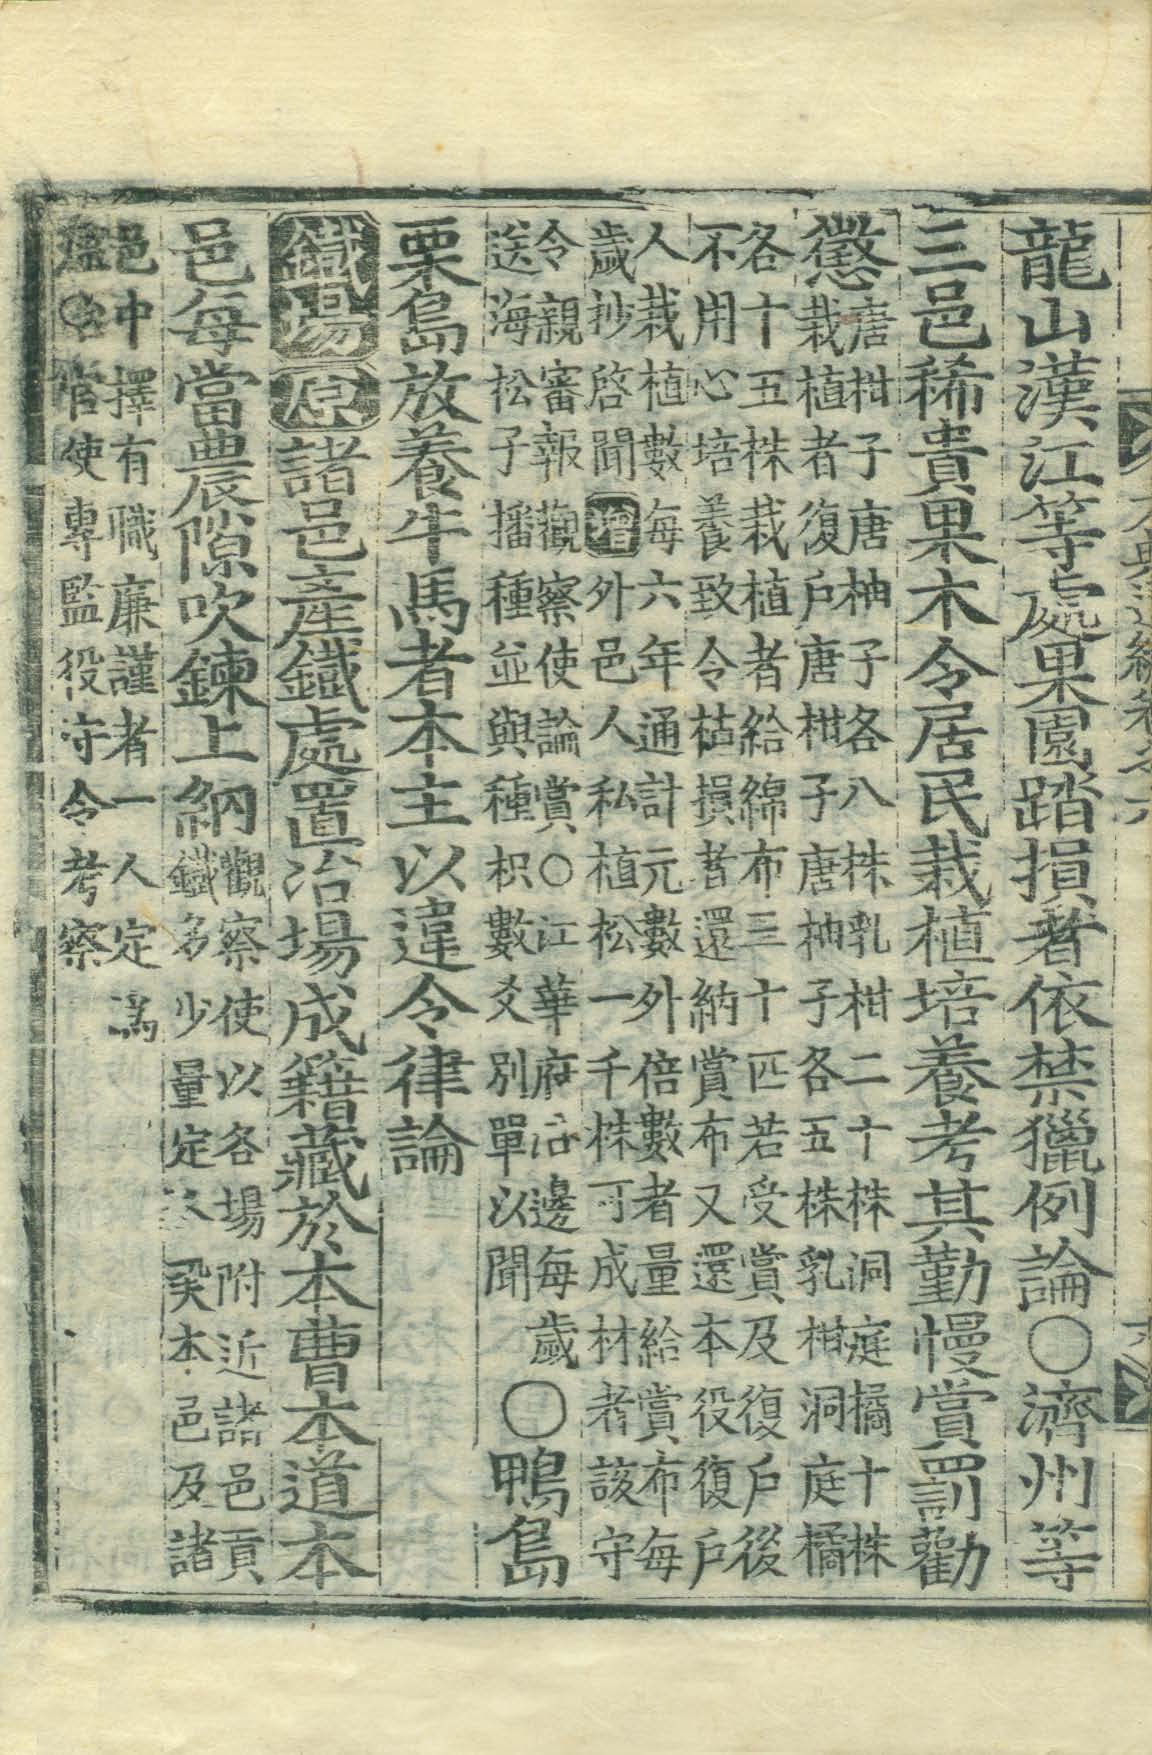 龍山漢江等處果園踏損者依禁獵例論〇濟州等
三邑稀貴果木令居民栽植培養考其勤慢賞罰勸
懲唐柑子唐柚子各八株乳柑二十株洞庭橘十株
栽植者復戶唐柑子唐柚子各五株乳柑洞庭橘
各十五株栽植者給綿布三十匹若受賞及復戶後
不用心培養致令枯損者還納賞布又還本役復戶
人栽植數每六年通計元數外倍數者量給賞布每
歲抄啓聞增外邑人私植松一千株可成材者該守
令親審報觀察使論賞〇江華府沿邊每歲
送海松子播種並與種枳數爻別單以聞
〇鴨島
栗島放養牛馬者本主以違令律論
鐵場原諸邑產鐵處置冶場成籍藏於本曹本道本
邑每當農隙吹鍊上納觀察使以各場附近諸邑貢
鐵多少量定本邑及諸
邑中擇有職廉謹者一人定爲
官使專監役守令考察
大典通編卷之六